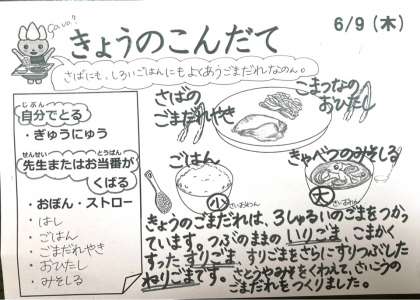 6/9 (木)
きょうのこんだて
さばにも、しろいごはんにもよくあうごまだれなのん。
自分でとる
じぶん
・ぎゅうにゅう
せんせい とうばん
先生またはお当番が
くばる
・おぼん・ストロー
・はし
・ごはん
・ごまだれやき
・おひたし
・みそしる
さばの
ごまだれやき
こまつなの
おひたし
ごはん
小
さいおわん
きゃべつのみそしる
大
さいおわん
きょうのごまだれは、3しゅるいのごまをつかっ
ています。つぶのままのいりごま、こまかく
すったすりごま、すりごまをさらにすりつぶした
ねりごまです。さとうやみそをくわえて、さいこうの
ごまだれをつくりました。